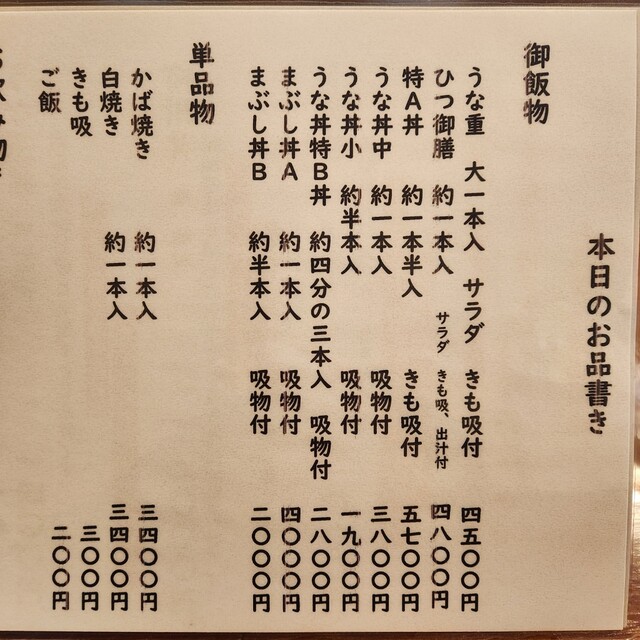 本日のお品書き
御飯物
うな重 大一本入 サラダ きも吸付 四五〇〇円
ひつ御膳 約一本入 サラダ きも吸、出汁付 四八〇〇円
特A丼 約一本半入 きも吸付 五七〇〇円
うな丼中 約一本入 吸物付 三八〇〇円
うな丼小 約半本入 吸物付 一九〇〇円
うな丼特B丼 約四分の三本入 吸物付 二八〇〇円
まぶし丼A 約一本入 吸物付 四〇〇〇円
まぶし丼B 約半本入 吸物付 二〇〇〇円
単品物
かば焼き 約一本入 三四〇〇円
白焼き 約一本入 三四〇〇円
きも吸 三〇〇円
ご飯 二〇〇円